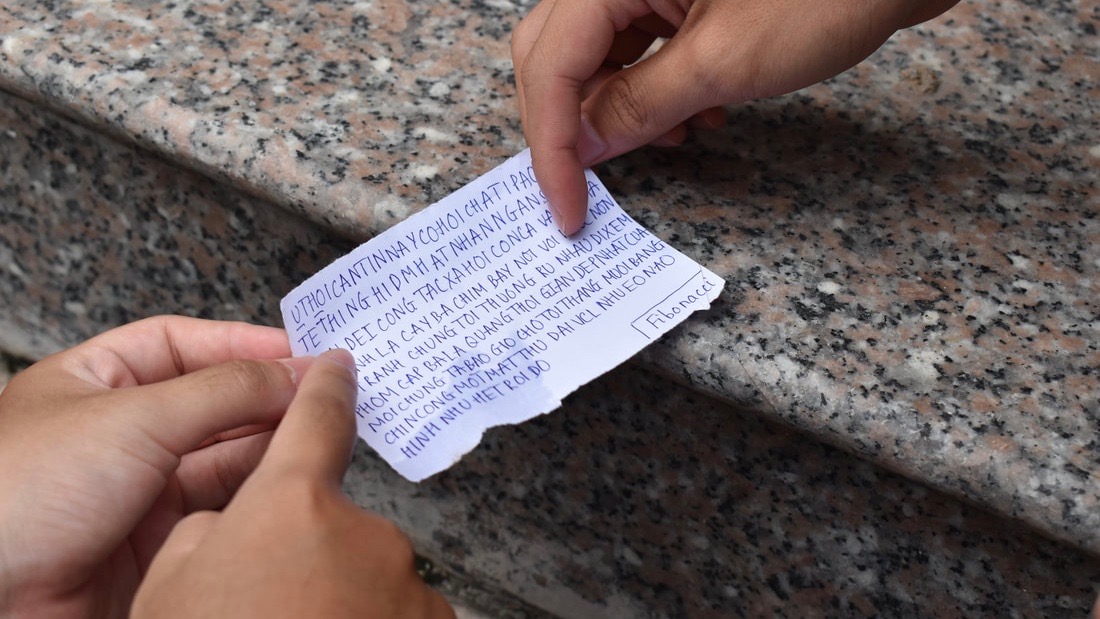 UTHOICANTINNAYCOHOICHATIPAC
TETHINGHIDMHATNHANNGANS
DEICONG TACXAHOICONCA VA
NHLA CAYBACHIM BAY NOT VOI NON
RANH CHUNG TOI THUONG RU NHAU DIXEM
PHOM CAP BALA QUANGTHOI GIAN DEPNHATCUA
MOICHUNG TABAO GIO CHOTOITHANG MUOIBANG
CHINCONG MOTMATTHU DAI VCL NHUEO NAO
HINH NHU HETROIDO
Fibonacci